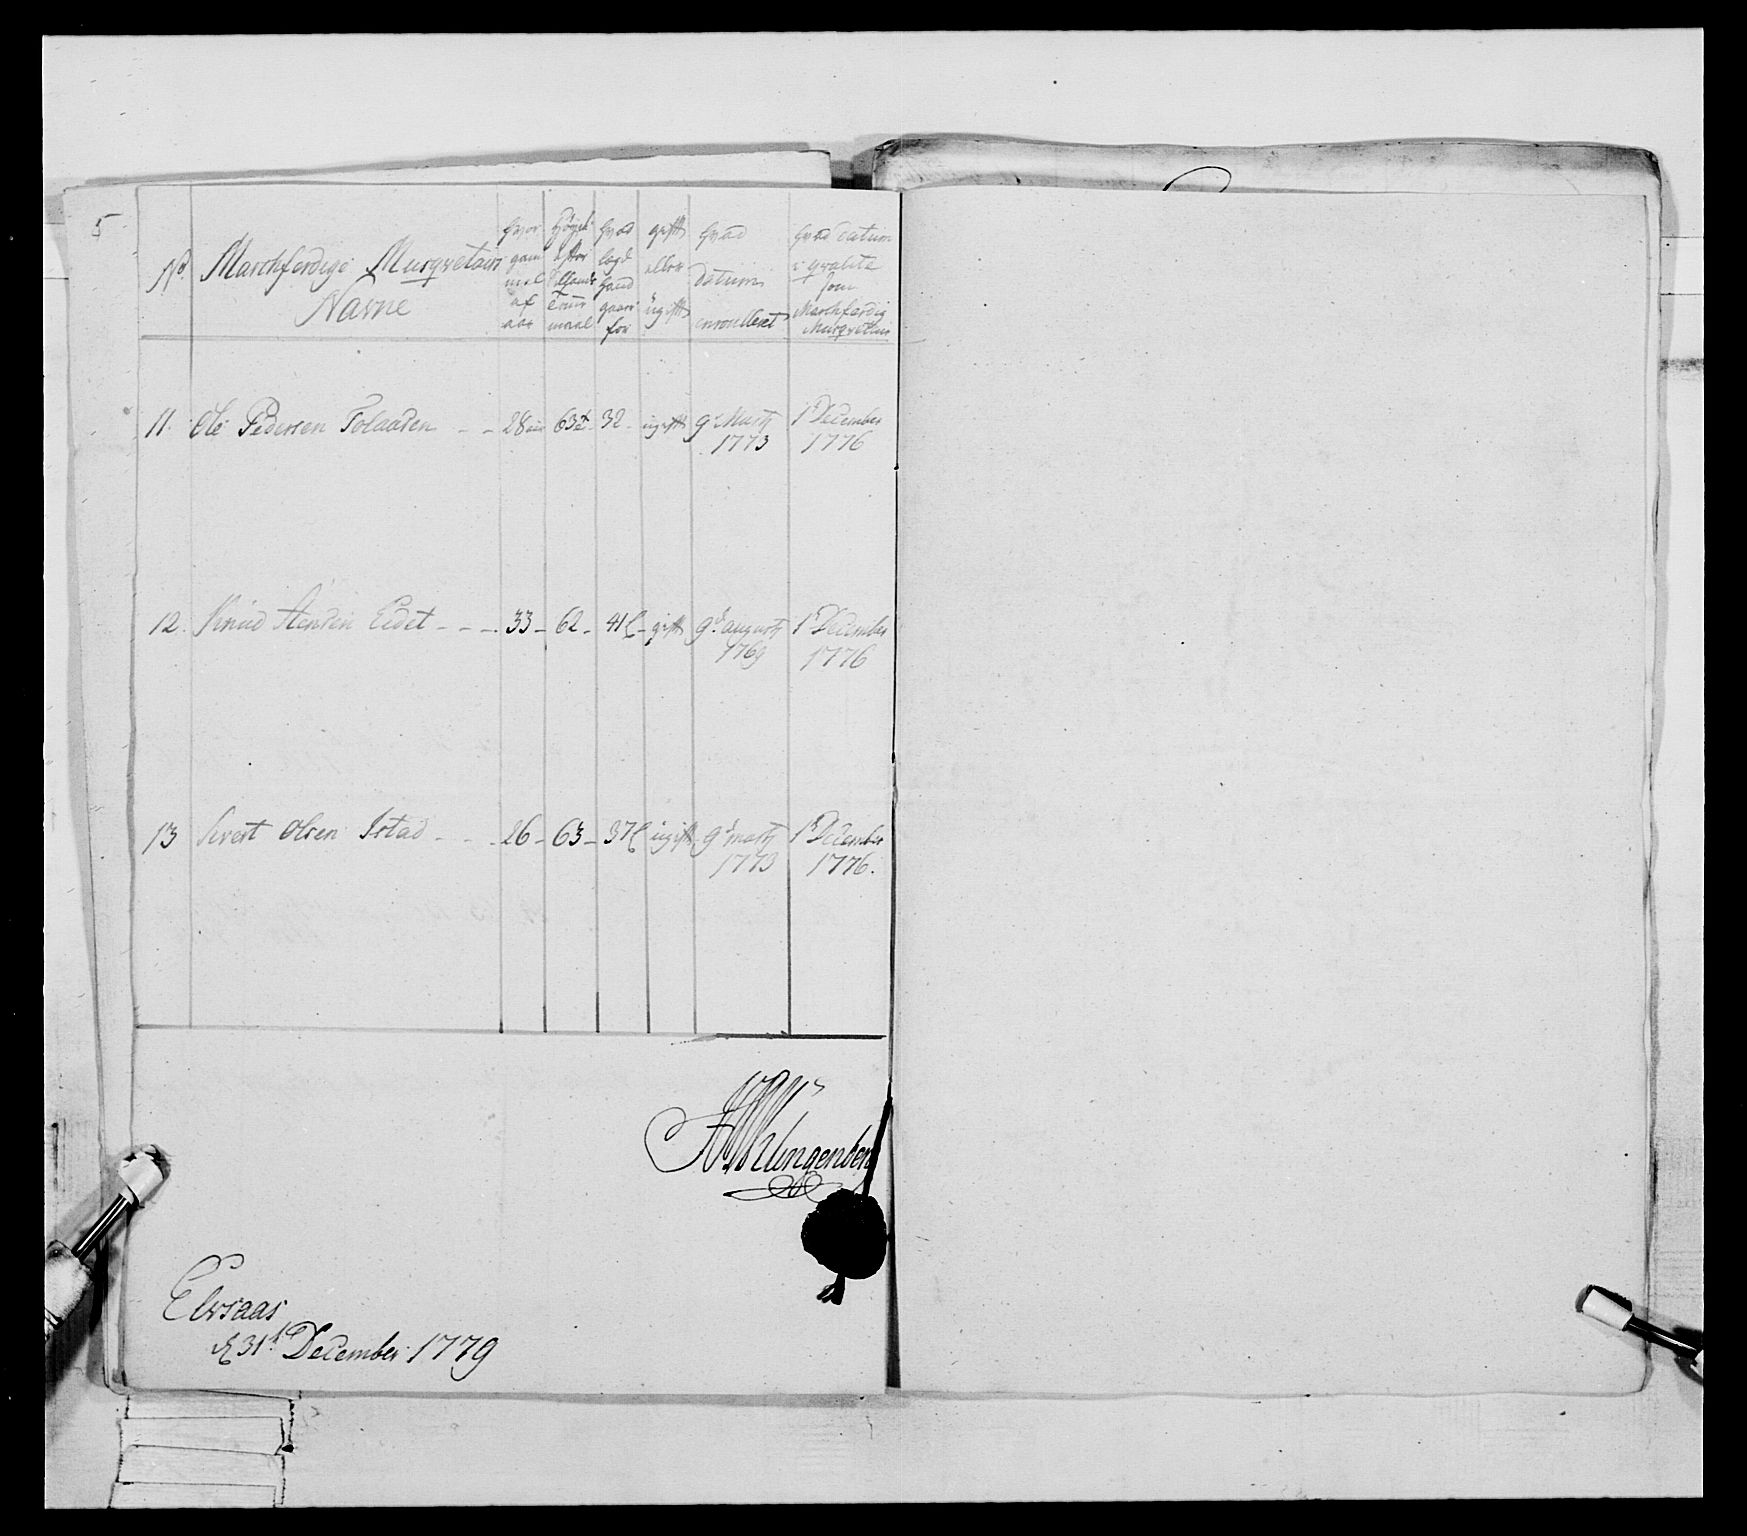 5
No Marchferdige Murqvetairs Navne
hvor gam mel af aar
Højde efter Tollands Tome maal
hvad legd hand gaar for
gift eller ugift
hvad datum enroulleret
hvad datum i qvalite som Marchfærdig Murqvetair
11. Ole Pedersen Folaasen - - 28 63½ 32 - ugift 9d Martz 1773 1d December 1776
12. Knud Stensen Eedet - - - 33 - 62 - 41 - gift 9d augusti 1769 1d December 1776
13 Sivert Olsen Istad - - - 26 - 63 - 37 ugift 9d martz 1773 1d December 1776.
Klingenberg
Elvsaas
d 31t December 1779